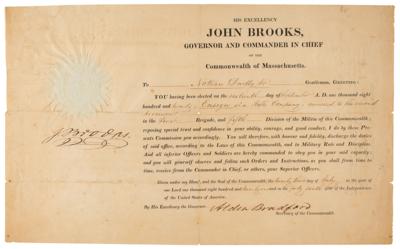 HIS EXCELLENCY
JOHN BROOKS,
GOVERNOR AND COMMANDER IN CHIEF
OF THE
COMMONWEALTH OF Massachusetts.
To Gentleman, GREETING:
YOU having been elected on the day of A. D. one thousand eight
hundred and Ensign of a Company, annexed to the second
Regiment
in the Brigade, and fifth Division of the Militia of this Commonwealth;
reposing special trust and confidence in your ability, courage, and good conduct, I do by these Pre-
sents Commission you accordingly. You will therefore, with honour and fidelity, discharge the duties
of said office, according to the Laws of this Commonwealth, and to Military Rule and Discipline.
And all inferior Officers and Soldiers are hereby commanded to obey you in your said capacity;
and you will yourself observe and follow such Orders and Instructions, as you shall from time to
time, receive from the Commander in Chief, or others, your Superior Officers.
J. Brooks.
Given under my Hand, and the Seal of the Commonwealth, the day of in the year of
our Lord one thousand eight hundred and and in the year of the Independence
of the United States of America.
By His Excellency the Governor,
Alden Bradford
Secretary of the Commonwealth.